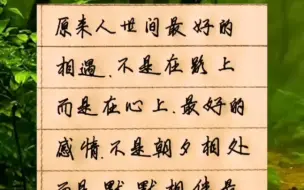 原来人世间最好的
相遇.不是在路上
而是在心上.最好的
感情.不是朝夕相处
而是默默相伴是